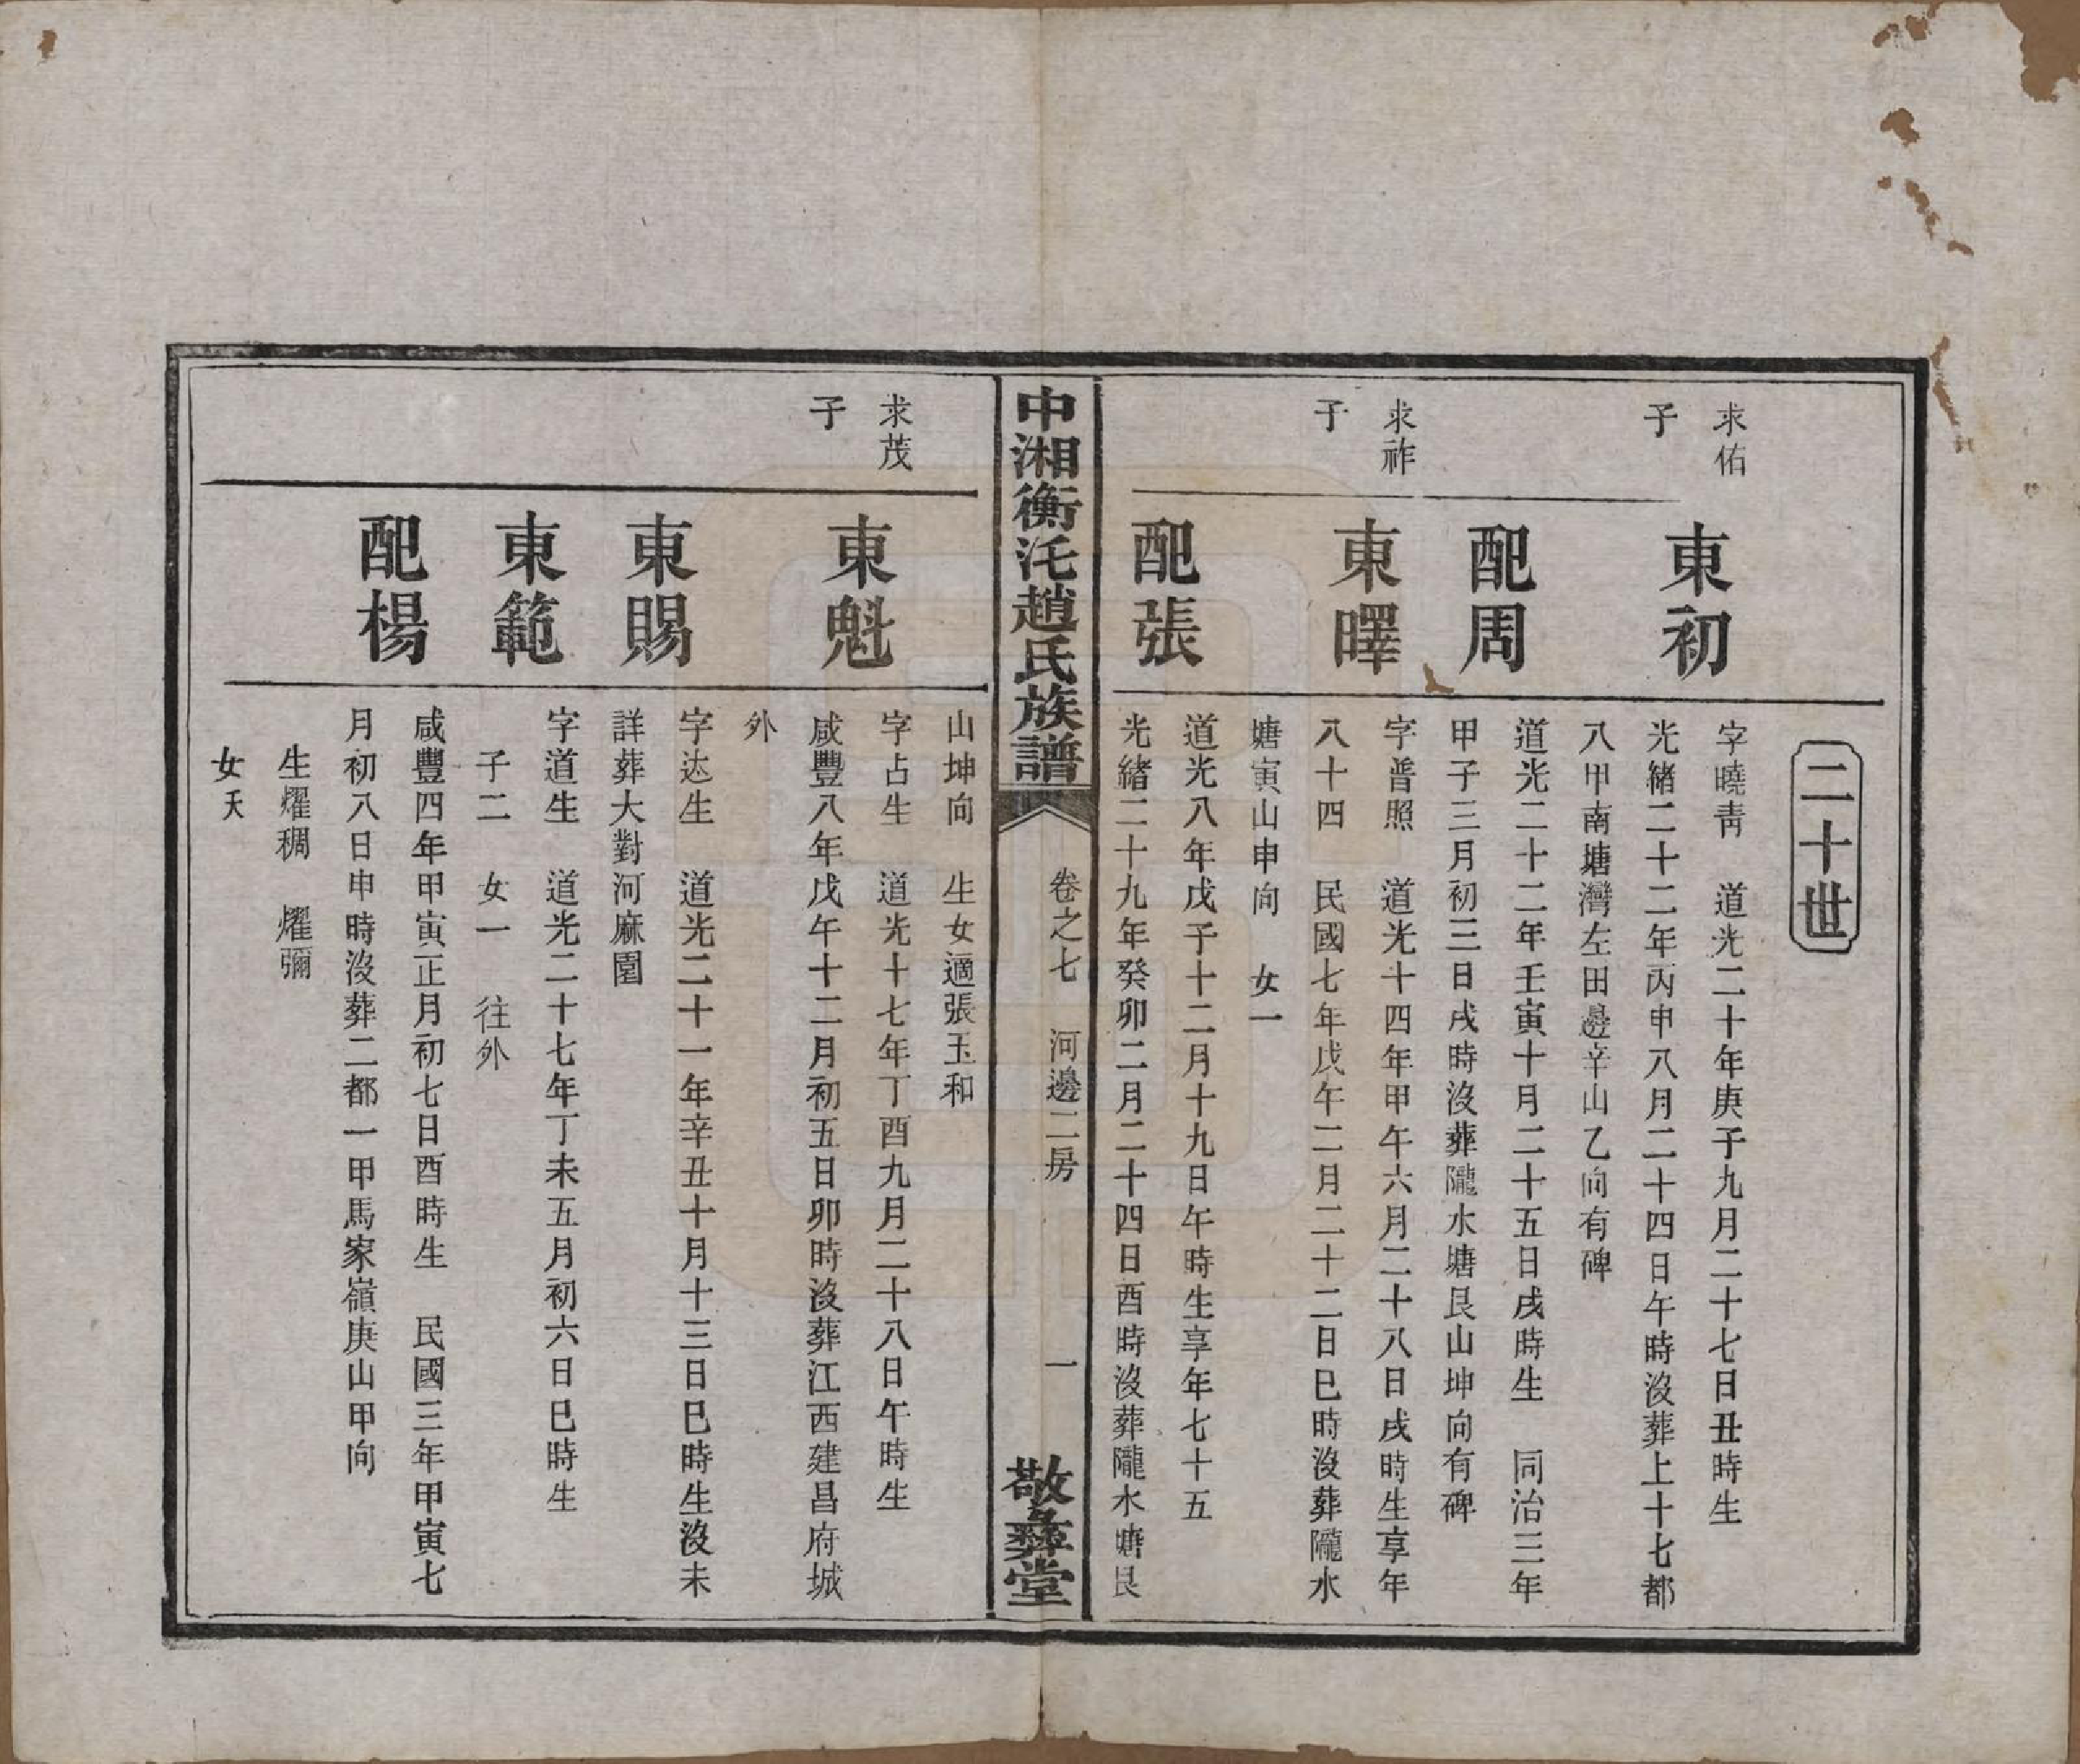 二十世
求佑
子
東初
字曉靑　道光二十年庚子九月二十七日丑時生
光緒二十二年丙申八月二十四日午時沒葬上十七都
八甲南塘灣左田邊辛山乙向有碑
配周
道光二十二年壬寅十月二十五日戌時生　同治三年
甲子三月初三日戌時沒葬隴水塘艮山坤向有碑
求祚
子
東曎
字普照　道光十四年甲午六月二十八日戌時生享年
八十四　民國七年戊午二月二十二日巳時沒葬隴水
塘寅山申向　女一
配張
道光八年戊子十二月十九日午時生享年七十五
光緒二十九年癸卯二月二十四日酉時沒葬隴水塘艮
中湘衡汑趙氏族譜
卷之七　河邊二房
一
敬彝堂
山坤向　生女適張玉和
求茂
子
東魁
字占生　道光十七年丁酉九月二十八日午時生
咸豐八年戊午十二月初五日卯時沒葬江西建昌府城
外
東賜
字达生　道光二十一年辛丑十月十三日巳時生沒未
詳葬大對河麻園
東範
字道生　道光二十七年丁未五月初六日巳時生
子二　女一　往外
配楊
咸豐四年甲寅正月初七日酉時生　民國三年甲寅七
月初八日申時沒葬二都一甲馬家嶺庚山甲向
生燿稠　燿彌
女夭